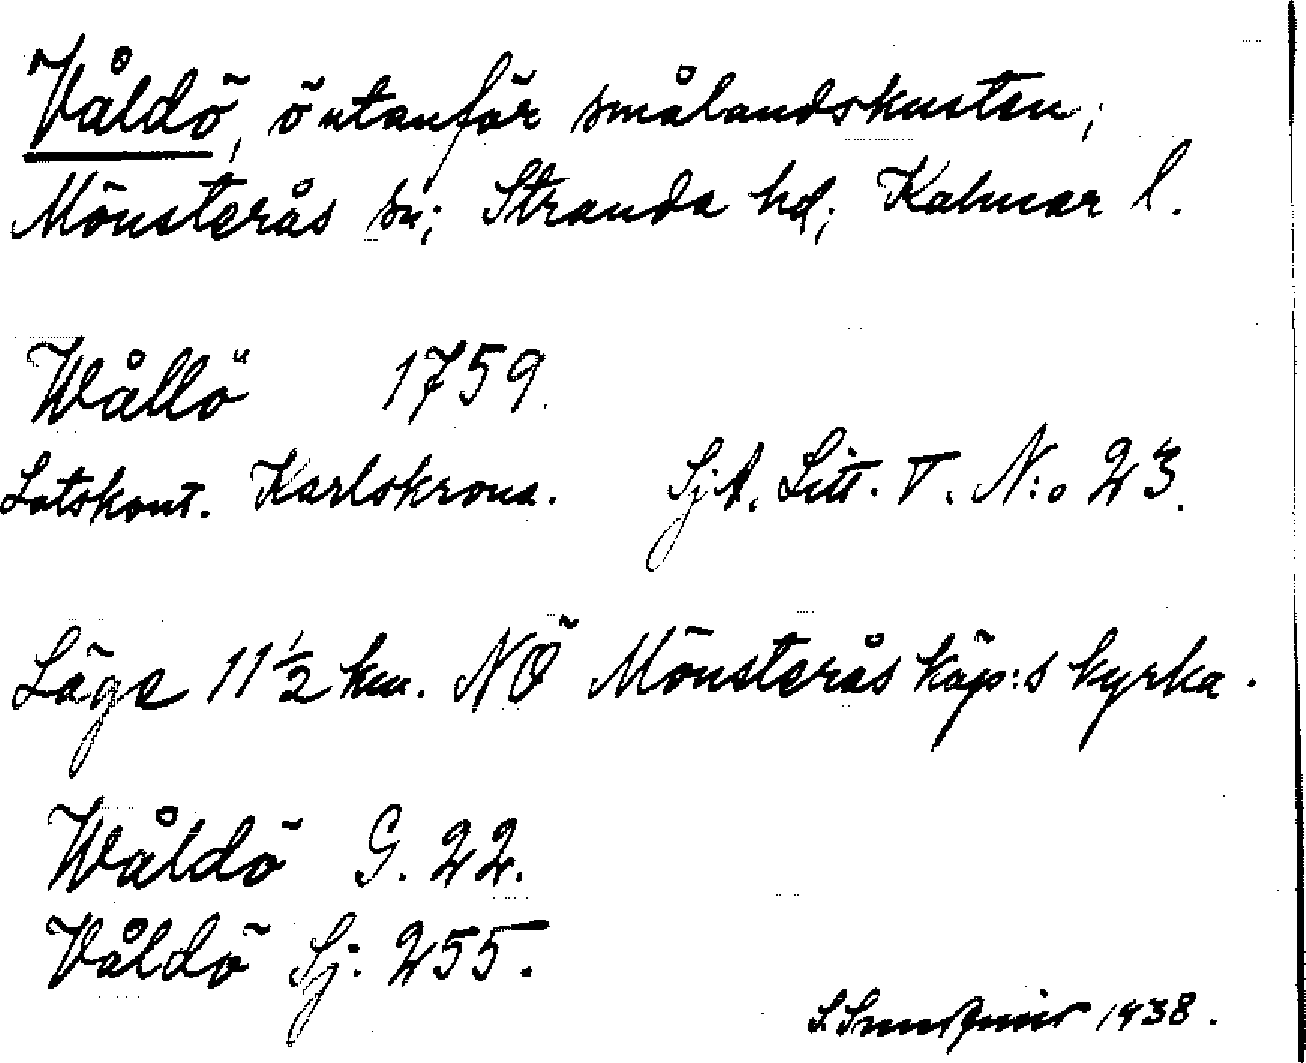 Våldö, ö utanför smålandskusten;
Mönsterås sn; Stranda hd; Kalmar l.
Wållö 1759.
Lotskont. Karlskrona. SjA. Litt. T. N:o 23.
Läge 11 1/2 km. NÖ Mönsterås köp:s kyrka.
Wåldö G. 22.
Våldö Sj. 255.
S. 1938.